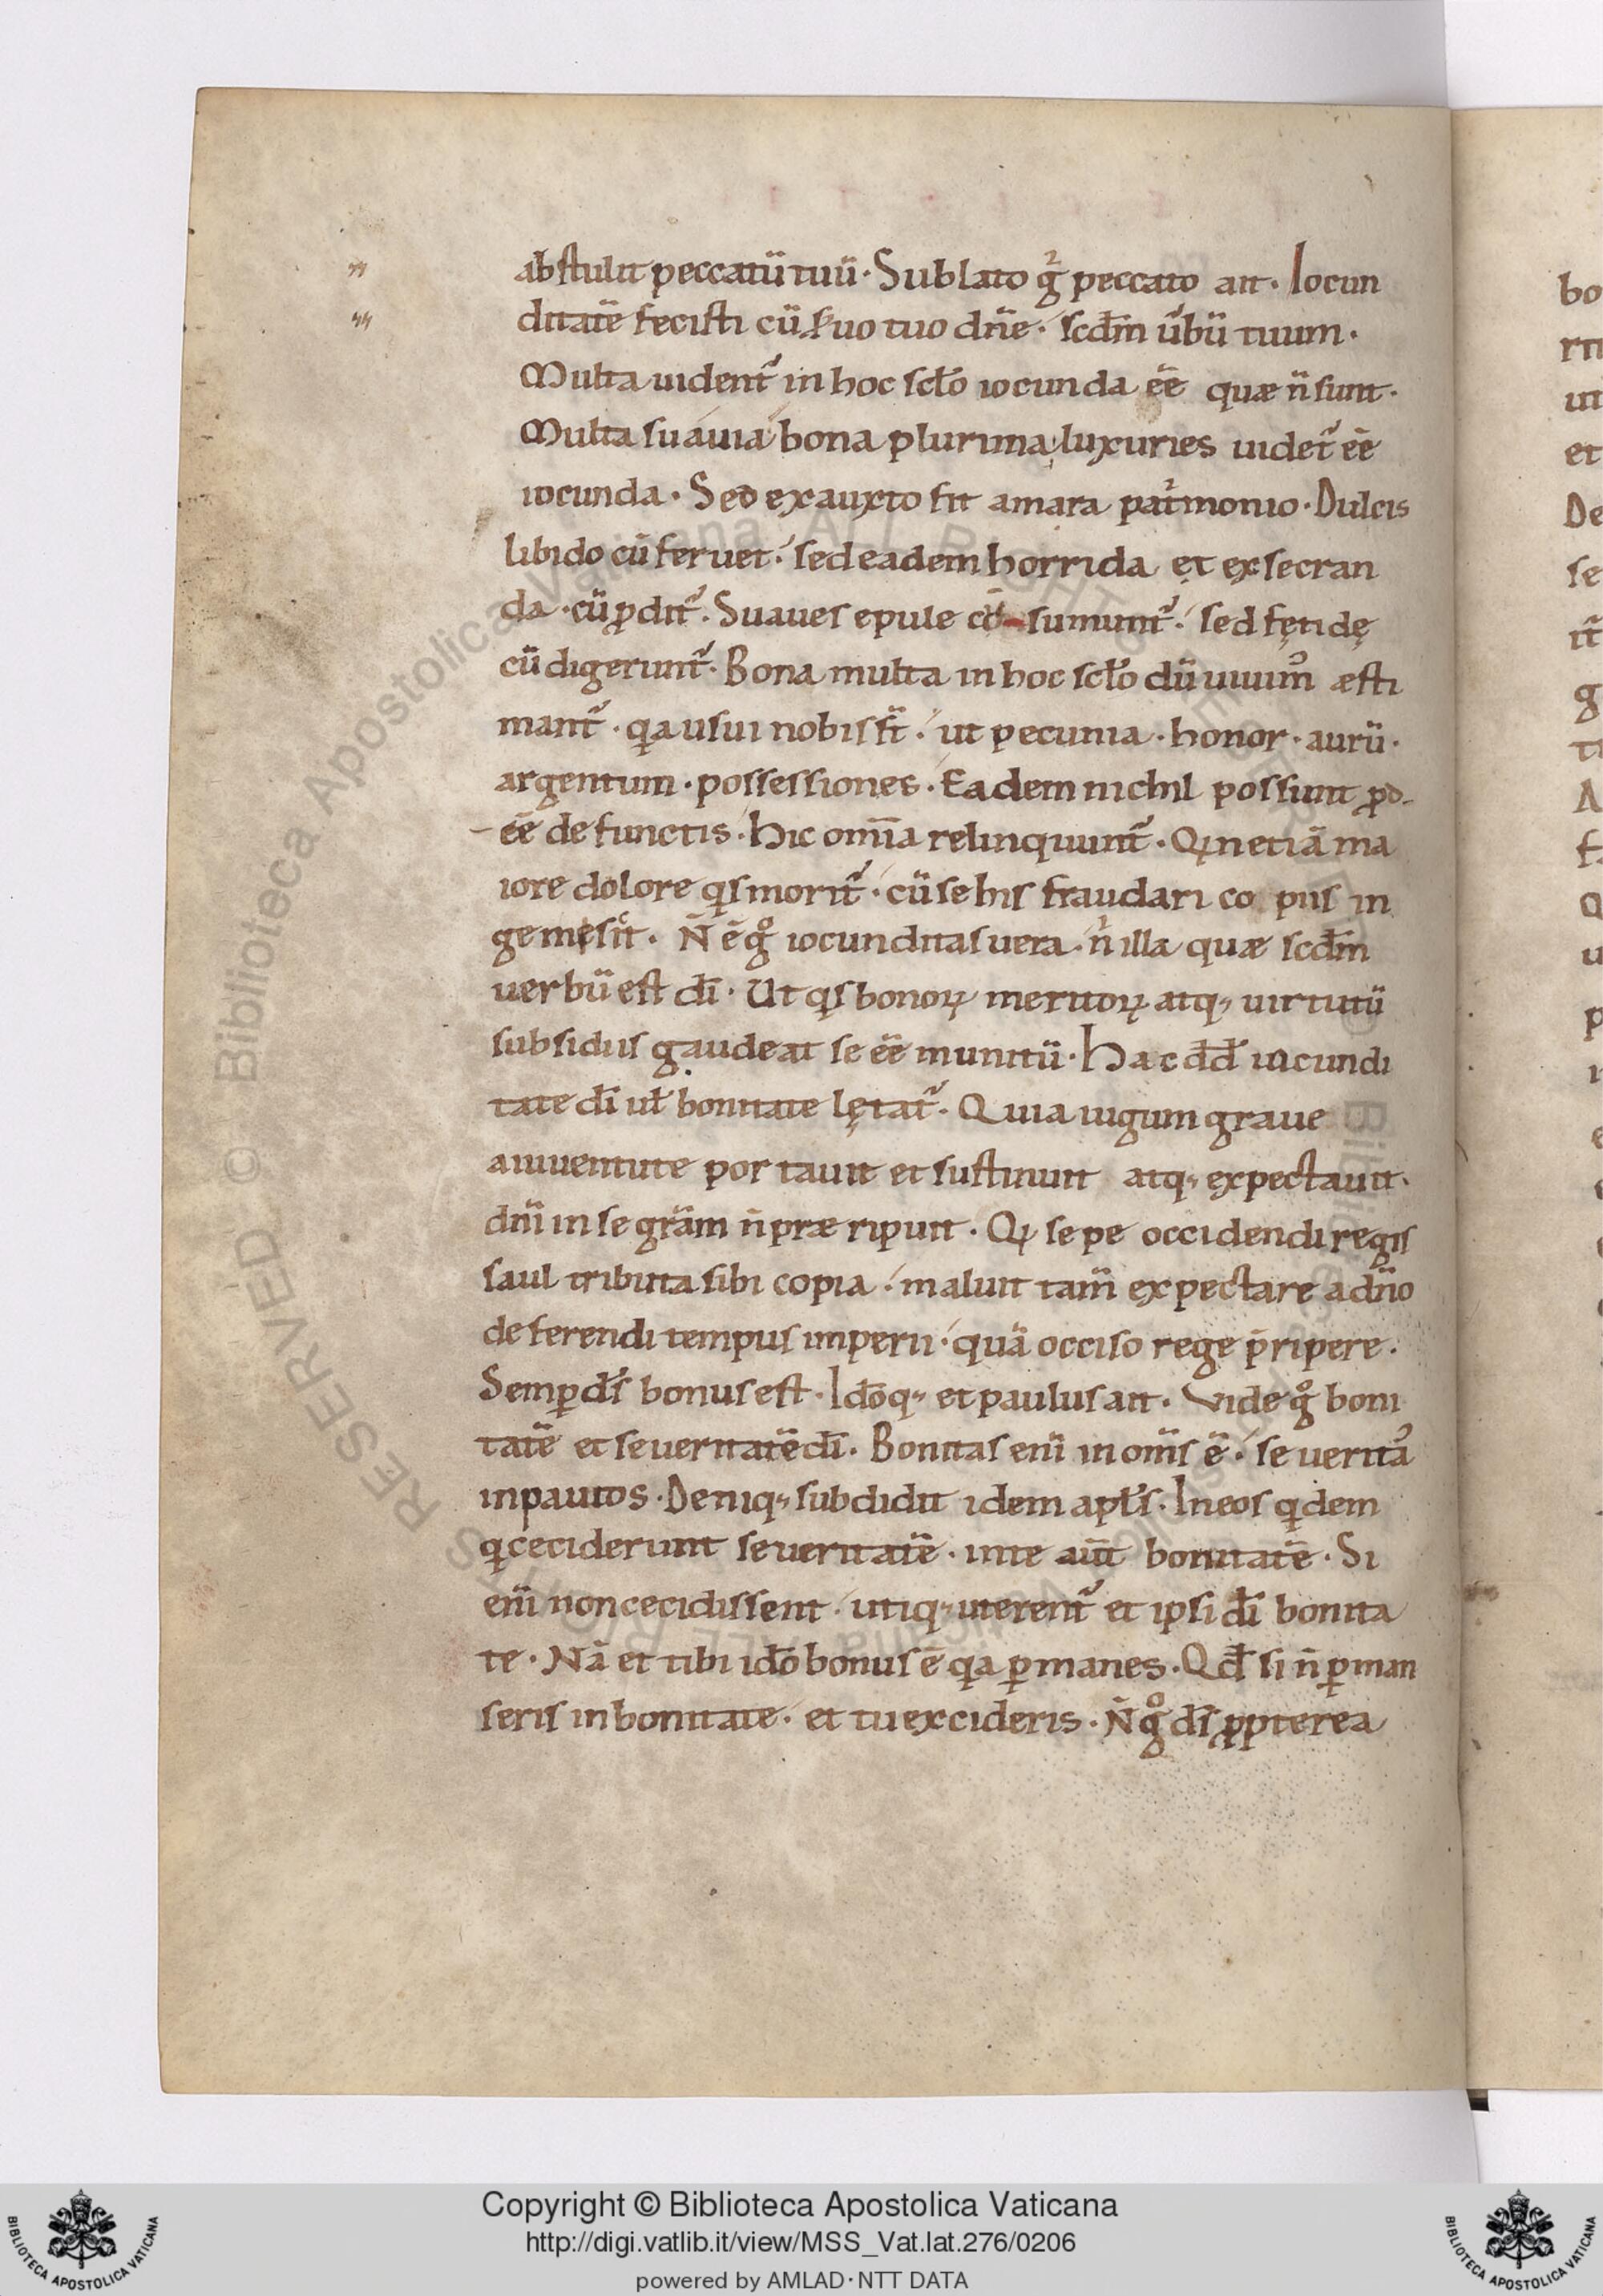 abstulit peccatū tuū · Sublato gͥ peccato ait · Iocun
ditatē fecisti cū s̄uo tuo dn̄e · scd̄m ūbū tuum ·
Multa uident᷑ in hoc scl̄o iocunda eē quæ n̄ sunt ·
Multa suauia bona plurima luxuries uidet᷑ eē
iocunda · Sed exauxto fit amara pat̛monio · Dulcis
libido cū feruet · sed eadem horrida et exsecran
da · cū ꝓdit᷑ · Suaues epule cō sumunt᷑ · sed fętidę
cū digerunt᷑ · Bona multa in hoc scl̄o dū uiuim᷒ æsti
mant᷑ · q̇a usui nobis st̄ · ut pecunia · honor · aurū ·
argentum · possessiones · Eadem nichil possunt ꝓd-
-eē defunctis · hic om̄ia relinquunt᷑ · Qn etiā ma
iore dolore q̇s morit᷑ · cū se his fraudari co piis in
gemesit̛ · N̄ ē gͦ iocunditas uera · nͥ illa quæ scd̄m
uerbū est dī · Ut q̇s bonoꝝ meritoꝝ atq; uirtutū
subsidiis gaudeat se eē munitū · Hac dd̄ iucundi
tate dī ul̄ bonitate lętat᷑ · Quia iugum graue
a iuuentute portauit et sustinuit atq; expectauit ·
dn̄i in se gr̄am n̄ præripuit · Q sepe occidendi regis
saul tributa sibi copia · maluit tam̄ expectare a dn̄o
deferendi tempus imperii · quā occiso rege p̄ripere ·
Semꝑ dī̄s bonus est · Idōq; et paulus ait · Vide gͦ boni
tatē et seueritatē dī · Bonitas enī in om̄s ē · seuerita᷒
in pautos · Deniq; subdidit idem apl̄s · In eos q̇dem
q̇ ceciderunt seueritatē · in te aūt bonitatē · Si
enī non cecidissent · utiq; uterent᷑ et ipsi dī bonita
te · Nā et tibi idō bonus ē q̇a ꝑmanes · Qd̄ si n̄ ꝑman
seris in bonitate · et tu excideris · N̄ gͦ dī̄s ꝓpterea
Copyright © Biblioteca Apostolica Vaticana
http://digi.vatlib.it/view/MSS_Vat.lat.276/0206
powered by AMLAD · NTT DATA